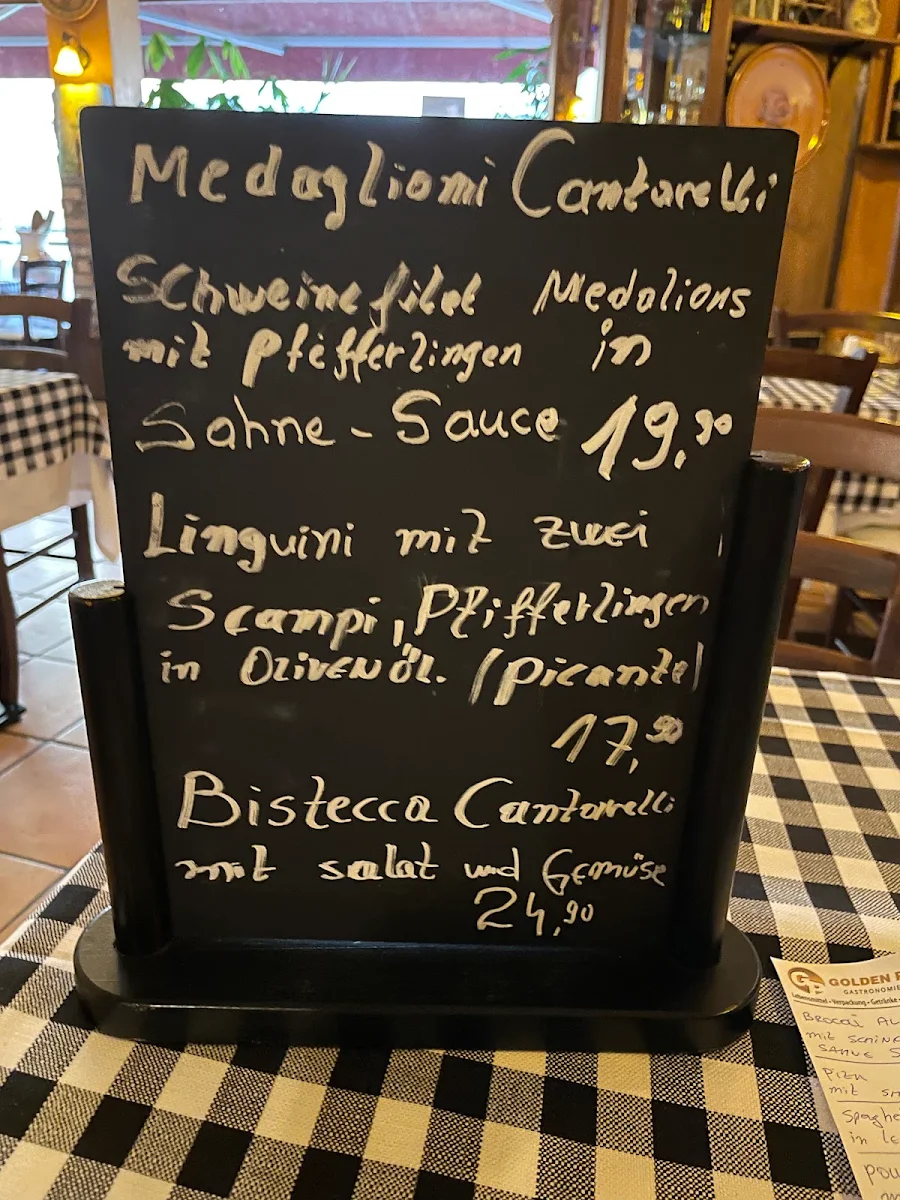 Medaglioni Cantarelli
Schweinefilet Medalions
mit Pfefferlingen in
Sahne-Sauce 19,90
Linguini mit zwei
Scampi, Pfifferlingen
in Olivenöl. (picante)
17,90
Bistecca Cantarelli
mit salat und Gemüse
24,90
GOLDEN
GASTRONOMIE
Lebensmittel • Verpackung • Getränke
mit
SAHNE
mit
in